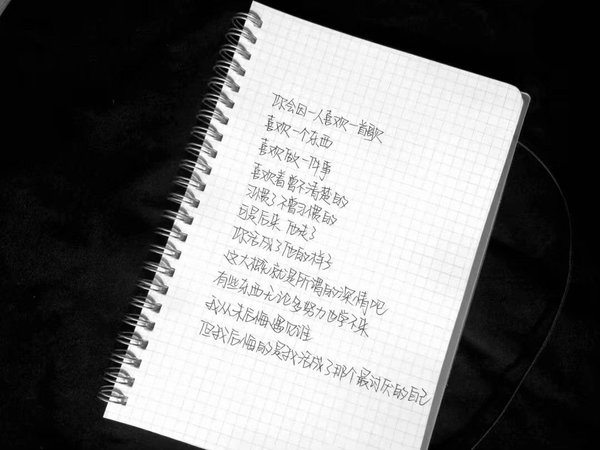 你会因一人喜欢一首歌
喜欢一个东西
喜欢做一件事
喜欢着曾不清楚的
习惯了不曾习惯的
可是后来 他走了
你活成了他的样子
这大概就是所谓的深情吧
有些东西无论多努力也学不来
我从未后悔遇见谁
但我后悔的是我活成了那个最讨厌的自己